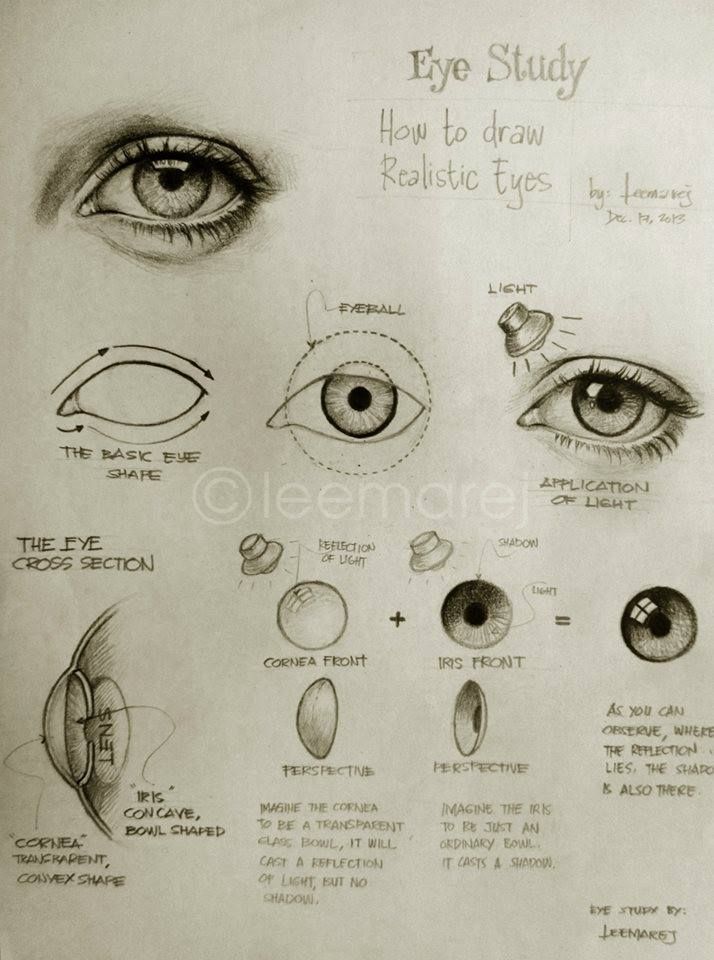 Eye Study
How to draw
Realistic Eyes
by: leemarej
Dec. 17, 2013
EYEBALL
LIGHT
THE BASIC EYE
SHAPE
APPLICATION
OF LIGHT
©leemarej
THE EYE
CROSS SECTION
REFLECTION
OF LIGHT
SHADOW
LIGHT
+
=
CORNEA FRONT
IRIS FRONT
LENS
PERSPECTIVE
PERSPECTIVE
AS YOU CAN
OBSERVE, WHERE
THE REFLECTION
LIES. THE SHADO
IS ALSO THERE.
"IRIS"
CONCAVE,
BOWL SHAPED
"CORNEA"
TRANSPARENT,
CONVEX SHAPE
IMAGINE THE CORNEA
TO BE A TRANSPARENT
GLASS BOWL, IT WILL
CAST A REFLECTION
OF LIGHT, BUT NO
SHADOW.
IMAGINE THE IRIS
TO BE JUST AN
ORDINARY BOWL.
IT CASTS A SHADOW.
EYE STUDY BY:
LEEMAREJ